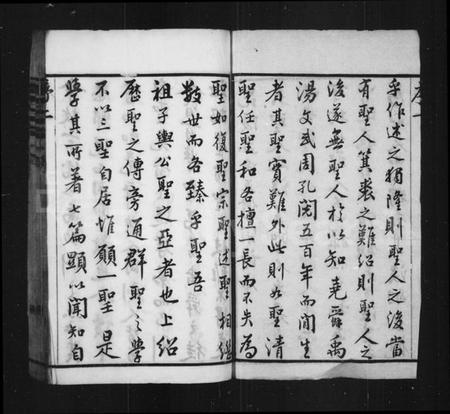 乎作述之獨隆則聖人之後當
有聖人箕裘之難紹則聖人之
後遂無聖人於以知堯舜禹
湯文武周孔閱五百年而間生
者其聖實難外此則如聖清
聖任聖和各擅一長而不失為
聖如復聖宗聖述聖相繼
數世而各臻乎聖吾
祖子輿公聖之亞者也上紹
歷聖之傳旁通群聖之學
不以三聖自居惟願一聖是
學其所著七篇顯以聞知自